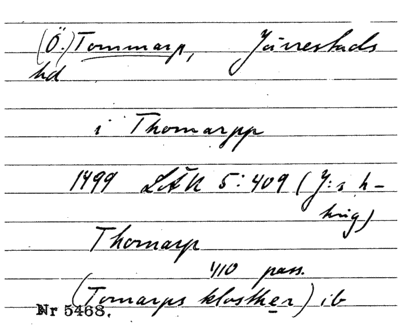 (Ö.) Tommarp, Järrestads
hd
i Thomarpp
1499 LÄU 5:409 (J:s h-
krig)
Thomarp
1/10 pass.
(Tomarps klosther) ib
Nr 5468.